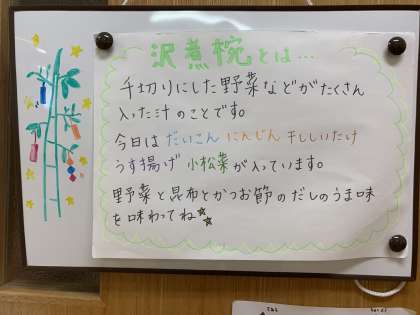 沢煮椀とは…
千切りにした野菜などがたくさん
入った汁のことです。
今日は だいこん にんじん 干ししいたけ
うす揚げ 小松菜 が入っています。
野菜と昆布とかつお節のだしのうま味
を味わってね